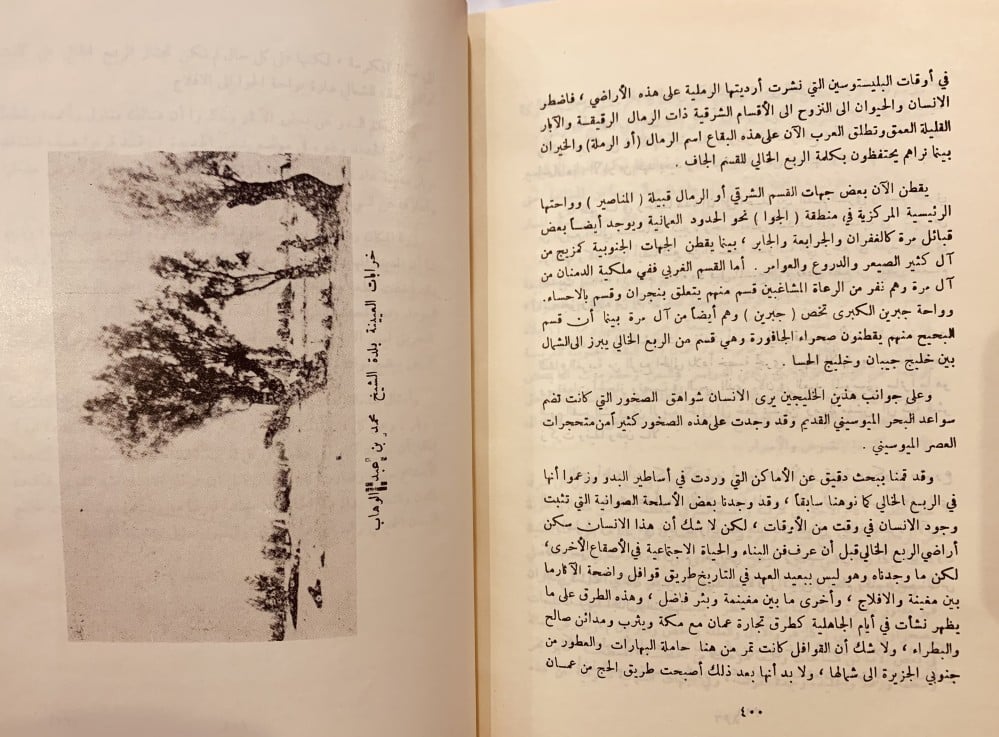 في أوقات البليستوسين التي نشرت أرديتها الرملية على هذه الأراضي ، فاضطر
الانسان والحيوان الى النزوح الى الأقسام الشرقية ذات الرمال الرقيقة والآبار
القليلة العمق وتطلق العرب الآن على هذه البقاع اسم الرمال (أو الرملة) والخيران
بينما نراهم يحتفظون بكلمة الربع الخالي للقسم الجاف .
يقطن الآن بعض جهات القسم الشرقي أو الرمال قبيلة ( المناصير ) وواحتها
الرئيسية المركزية في منطقة ( الجوا ) نحو الحدود العمانية ويوجد أيضاً بعض
قبائل مرة كالغفران والجرابعة والجابر ، بينما يقطن الجهات الجنوبية كمزيج من
آل كثير الصيعر والدروع والعوامر . أما القسم الغربي ففي ملكية الدمنان من
آل مرة وهم نفر من الرعاة المشاغبين قسم منهم يتعلق بنجران وقسم بالاحساء.
وواحة جبرين الكبرى تخص ( جبرين ) وهم أيضاً من آل مرة بينما أن قسم
البحيح منهم يقطنون صحراء الجافورة وهي قسم من الربع الخالي يبرز الى الشمال
بين خليج جيبان وخليج الحسا .
وعلى جوانب هذين الخليجين يرى الانسان شواهق الصخور التي كانت تضم
سواعد البحر الميوسيني القديم وقد وجدت على هذه الصخور كثيراً من متحجرات
العصر الميوسيني .
وقد قمنا ببحث دقيق عن الأماكن التي وردت في أساطير البدو وزعموا أنها
في الربع الخالي كما نوهنا سابقاً ، وقد وجدنا بعض الأسلحة الصوانية التي تثبت
وجود الانسان في وقت من الأوقات ، لكن لا شك أن هذا الانسان سكن
أراضي الربع الخالي قبل أن عرف فن البناء والحياة الاجتماعية في الأصقاع الأخرى ،
لكن ما وجدناه وهو ليس ببعيد العهد في التاريخ طريق قوافل واضحة الآثار ما
بين مغينة والافلاج ، وأخرى ما بين مغينمة وبئر فاضل ، وهذه الطرق على ما
يظهر نشأت في أيام الجاهلية كطرق تجارة عمان مع مكة ويثرب ومدائن صالح
والبطراء ، ولا شك أن القوافل كانت تمر من هنا حاملة البهارات والعطور من
جنوبي الجزيرة الى شمالها ، ولا بد أنها بعد ذلك أصبحت طريق الحج من عمان
٤٠٠
خرابات العيينة بلدة الشيخ محمد بن عبد الوهاب